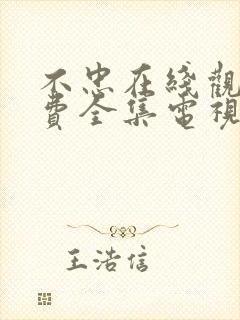 不忠在綫觀
費全集電視
王浩信